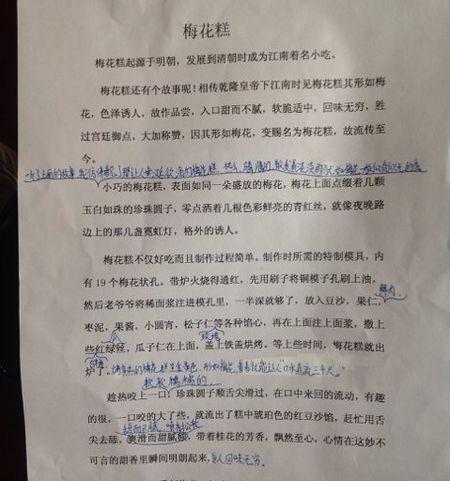 梅花糕
梅花糕起源于明朝，发展到清朝时成为江南着名小吃。
梅花糕还有个故事呢！相传乾隆皇帝下江南时见梅花糕其形如梅
花，色泽诱人，故作品尝，入口甜而不腻，软脆适中，回味无穷，胜
过宫廷御点，大加称赞，因其形如梅花，变赐名为梅花糕，故流传至
今。
小巧的梅花糕，表面如同一朵盛放的梅花，梅花上面点缀着几颗
玉白如珠的珍珠圆子，零点洒着几根色彩鲜亮的青红丝，就像夜晚路
边上的那几盏霓虹灯，格外的诱人。
梅花糕不仅好吃而且制作过程简单。制作时所需的特制模具，内
有19个梅花状孔。带炉火烧得通红，先用刷子将铜模子孔刷上油，
然后老爷爷将稀面浆注进模孔里，一半深就够了，放入豆沙，果仁，
枣泥，果酱，小圆宵，松子仁等各种馅心，再在上面注上面浆，撒上
些红绿丝，瓜子仁在上面，盖上铁盖烘烤。等上些时间，梅花糕就出
炉了。
趁热咬上一口！珍珠圆子顺舌尖滑过，在口中来回的流动，有趣
的很，一口咬的大了些，就流出了糕中琥珀色的红豆沙馅，赶忙用舌
尖去舔，爽滑而甜腻，带着桂花的芳香，飘然至心，心情在这妙不
可言的甜香里瞬间明朗起来，令人回味无穷。